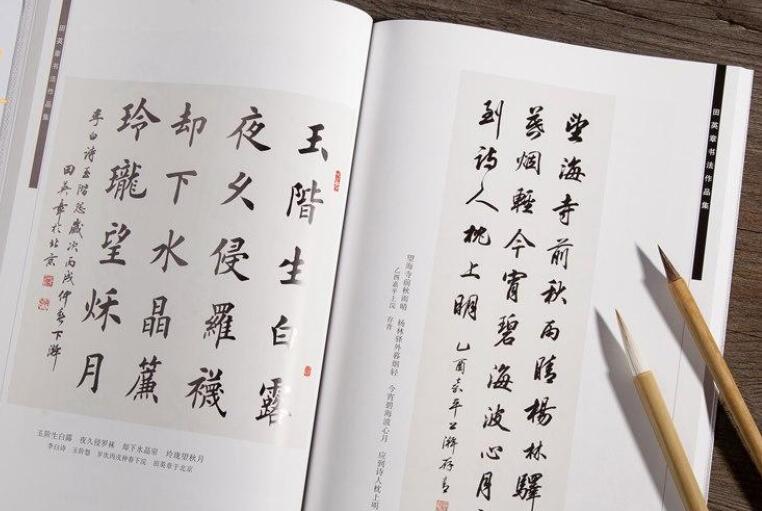 田英章书法作品集
玉階生白露
夜久侵羅襪
却下水晶簾
玲瓏望秌月
李白诗玉階怨歲次丙戌仲春下澣
田英章於北京
玉阶生白露 夜久侵罗袜 却下水晶帘 玲珑望秋月
李白诗 玉阶怨 岁次丙戌仲春下浣 田英章于北京
田英章书法作品集
望海寺前秋雨晴楊林驛
暮烟輕今宵碧海波心月
到诗人枕上明
乙酉嘉平上澣
望海寺前秋雨晴 杨林驿外暮烟轻 今宵碧海波心月 应到诗人枕上明
乙酉嘉平上浣